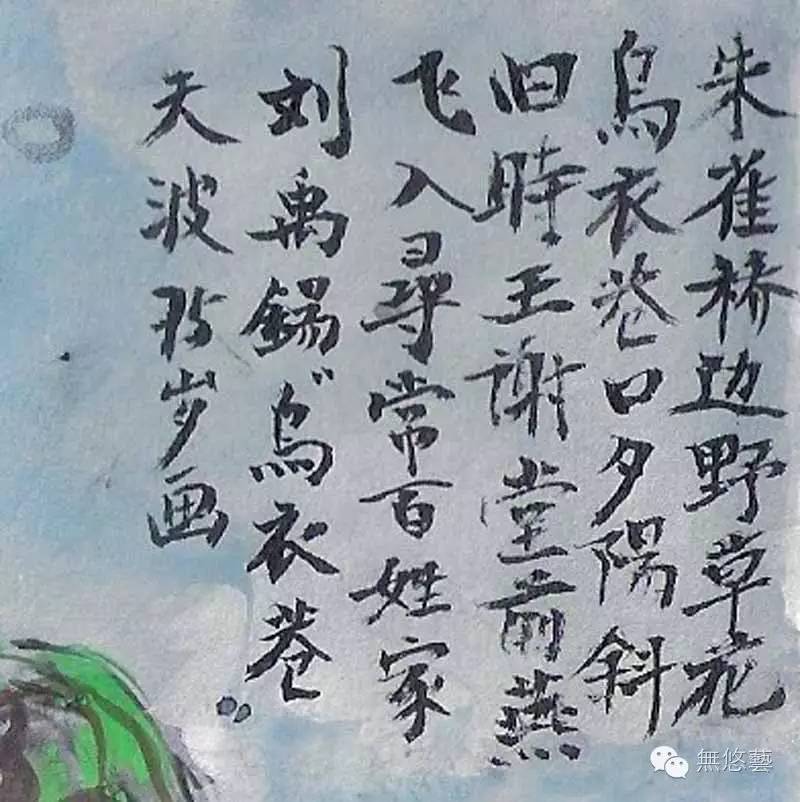 朱雀桥边野草花
烏衣巷口夕陽斜
旧時王谢堂前燕
飞入尋常百姓家
刘禹錫"烏衣巷"
天波岁画
無悠藝